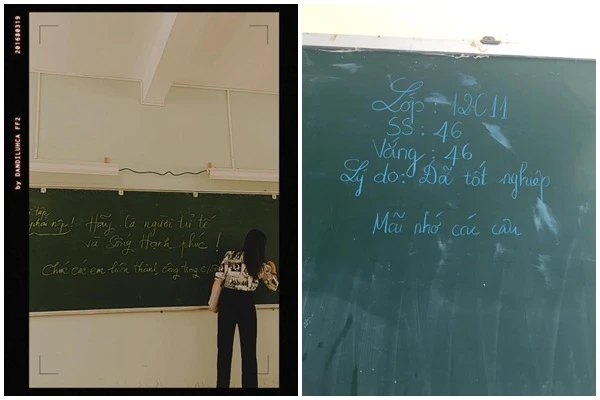 201680319
by DANDILUHCA FF2
tập
phải nộp!
Hãy là người tử tế
và sống Hạnh phúc!
Chúc các em luôn thành công trong
Lớp: 12C11
SS: 46
Vắng: 46
Lý do: Đã tốt nghiệp
Mãi nhớ các cậu